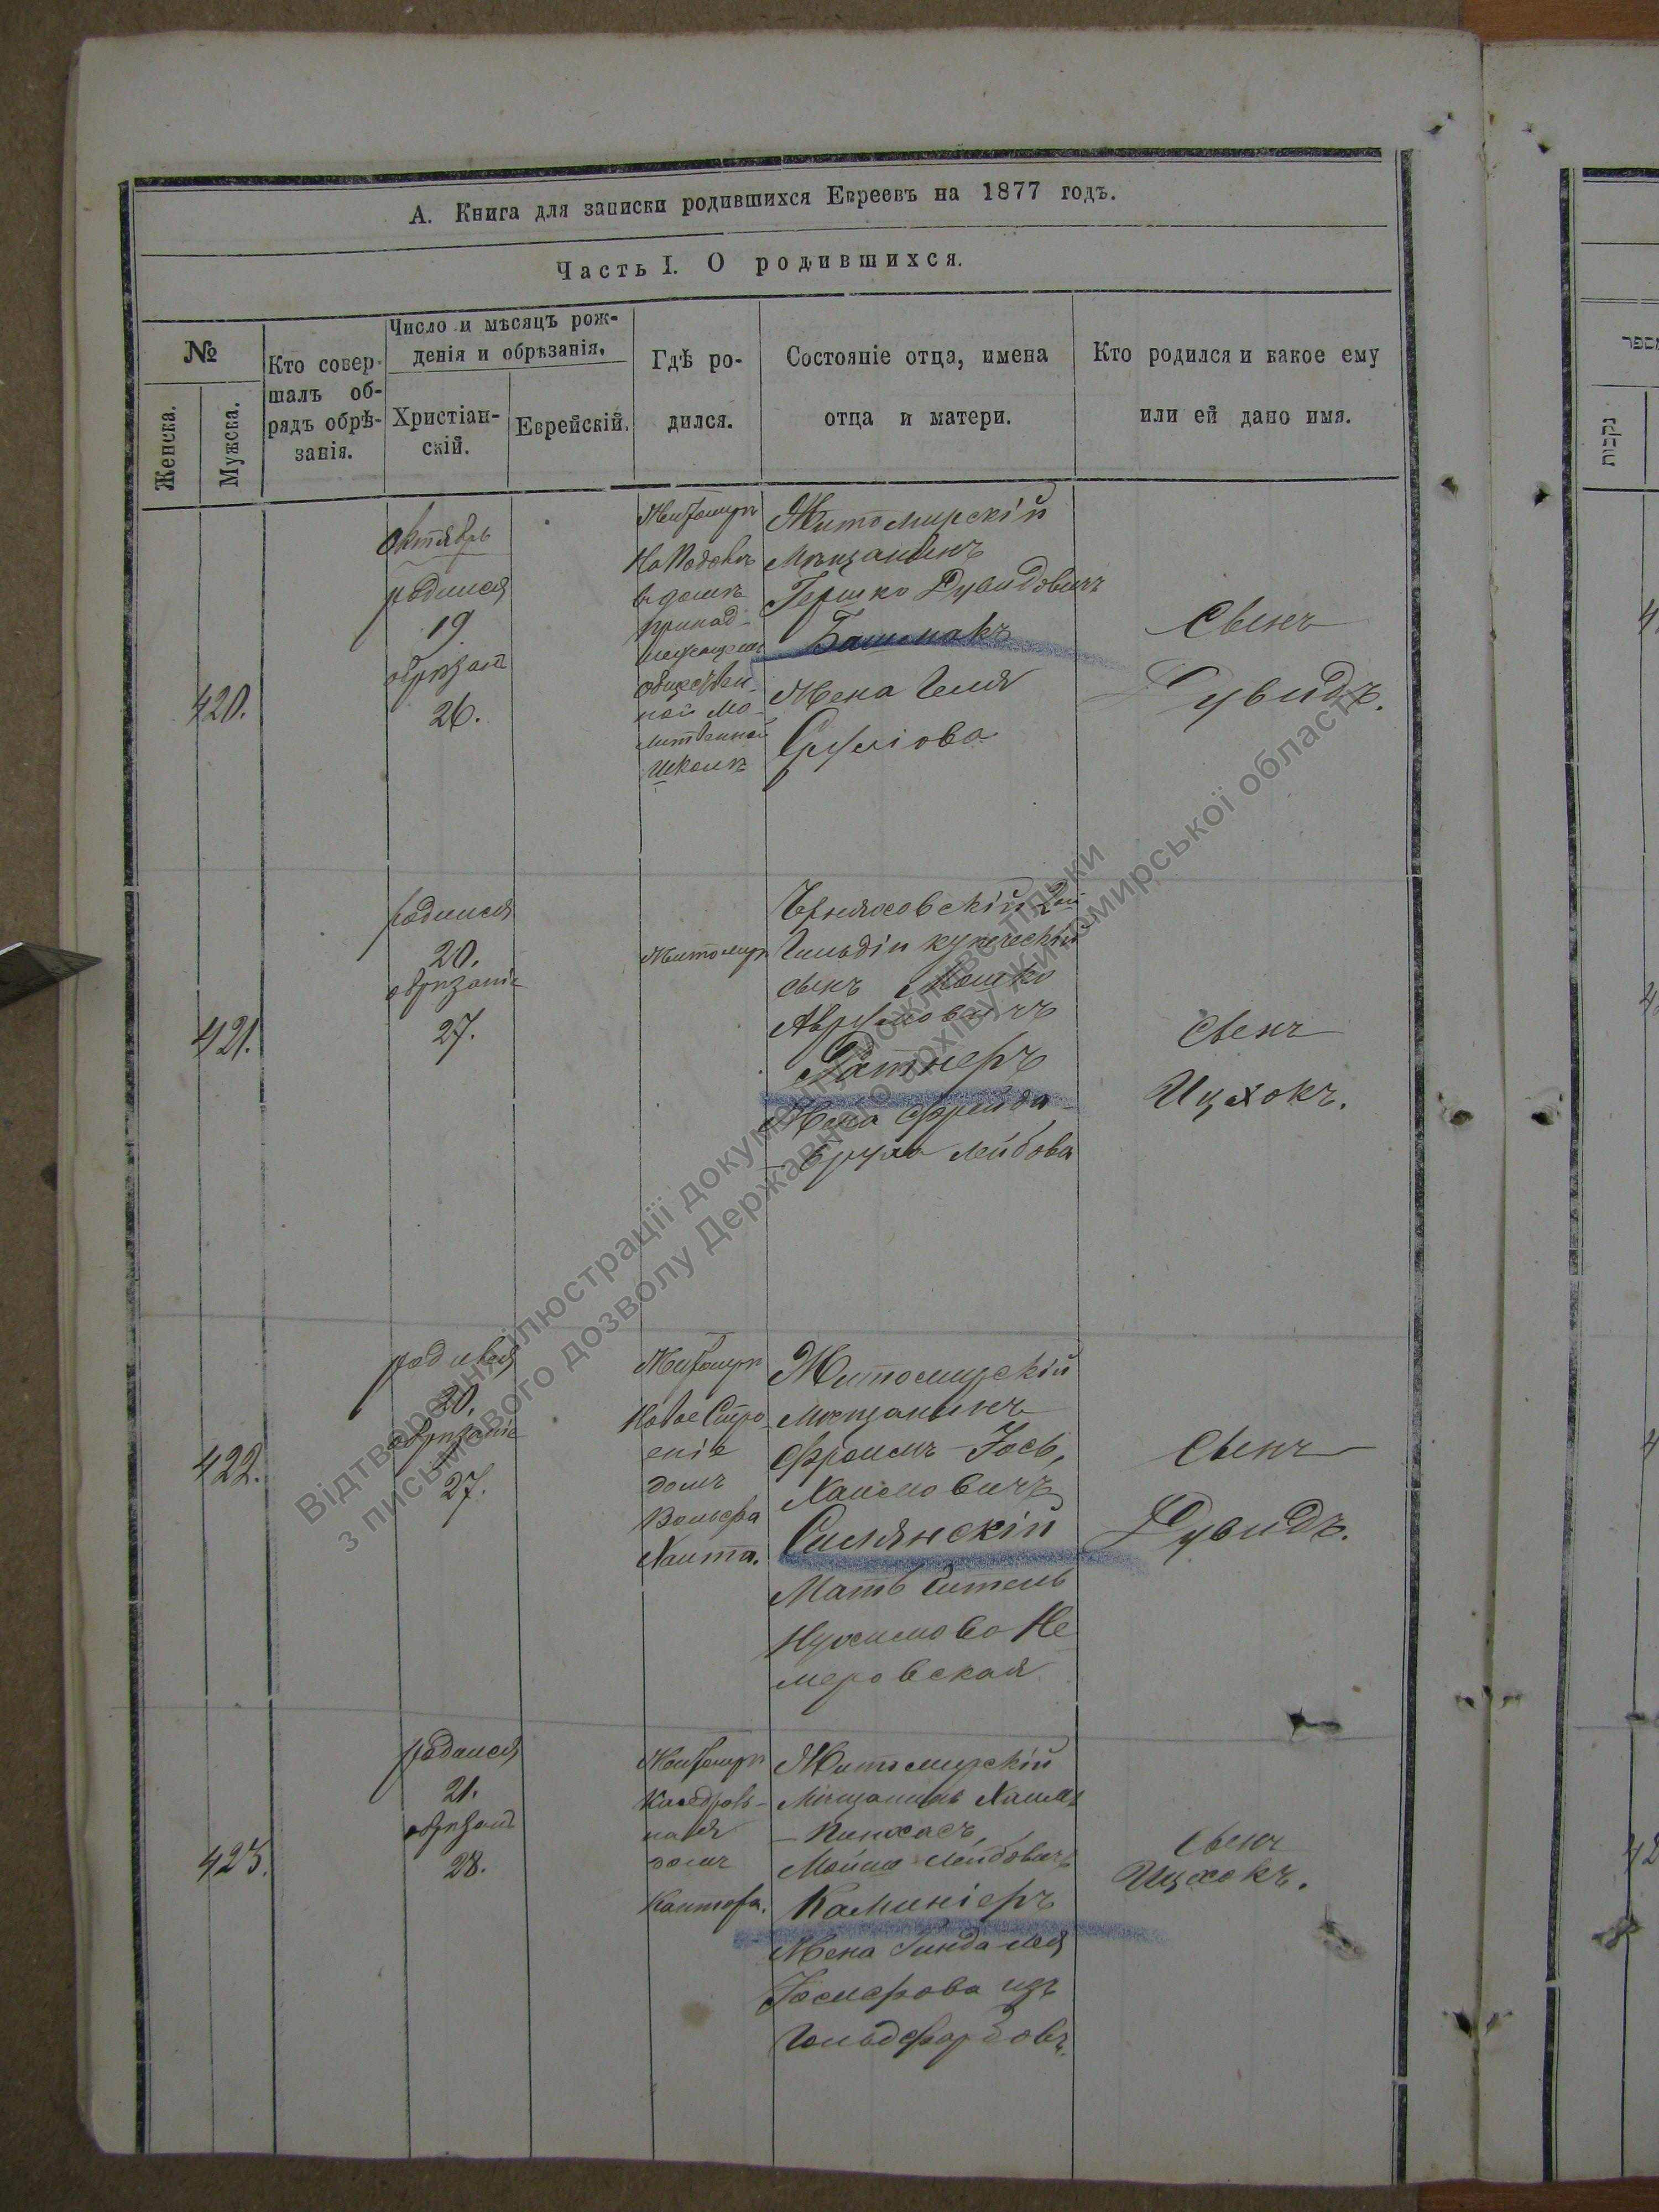 А. Книга для записки родившихся Евреевъ на 1877 годъ.
Часть I. О родившихся.
№
Женска.
Мужска.
Кто совер-
шалъ об-
рядъ обрѣ-
занія.
Число и мѣсяцъ рож-
денія и обрѣзанія.
Христіан-
скій.
Еврейскій.
Гдѣ ро-
дился.
Состояніе отца, имена
отца и матери.
Кто родился и какое ему
или ей дано имя.
420.
Октябрь
родился
19
обрѣзанъ
26.
Житомиръ
На Подолѣ
въ домѣ
принад-
лежащемъ
обществен-
ной мо-
литвенной
школѣ
Житомирскій
Мѣщанинъ
Гершко Дувидовичъ
Башмакъ
Жена Геля
Сруліова
Сынъ
Дувидъ.
421.
родился
20.
обрѣзаніе
27.
Житомиръ
Черняховскій 2ой
Гильдіи купеческій
сынъ Мошко
Аврумовичъ
Ратнеръ
Жена Фрейда
Лейбова
Сынъ
Ицхокъ.
422.
родився
20.
обрѣзаніе
27.
Житомиръ
Новое Стро-
еніе
домъ
Вольфа
Хаита.
Житомирскій
мѣщанинъ
Фроимъ-Іось
Хаимовичъ
Силянскій
Мать Гитель
Нухимова Не
меровская
Сынъ
Дувидъ.
423.
родился
21.
обрѣзанъ
28.
Житомиръ
Каѳедраль-
ная
домъ
Кантора.
Житомирскій
Мѣщанинъ Хаимъ
-Пинхасъ
Мойше-Лейбовичъ
Каминіеръ
Жена Гинда Лея
Іосиерова изъ
Гольдфарбовъ.
Сынъ
Ицхокъ.
מספר
נקבות
Відтворення ілюстрації документу можливе тільки
з письмового дозволу Державного архіву Житомирської області